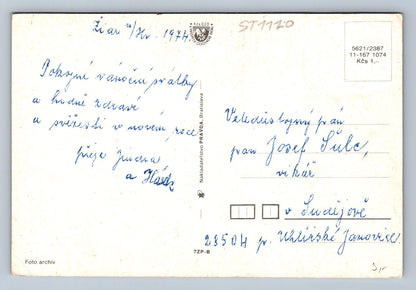 Žiar n/Hr. 1974.
ST1120
5621/2387
11-167 1074
Kčs 1,-
Pokojné vánoční svátky
a hodně zdraví
a svěžesti v novém roce
přeje Jindra
a
Nakladateľstvo PRAVDA, Bratislava
Veledůstojný pán
pan Josef Šulc,
vikář
v Sudějově
28504 p. Uhlířské Janovice
Foto archív
TZP-B
3,-